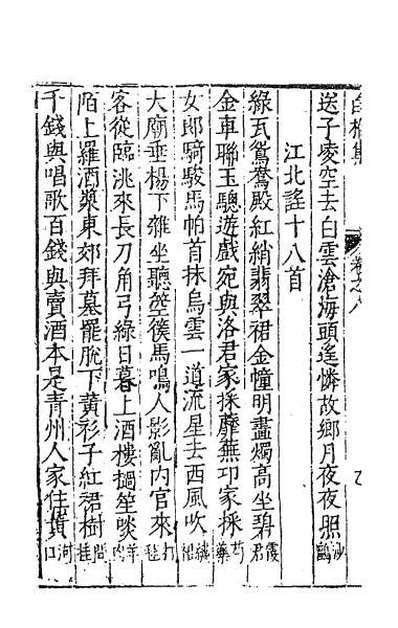 白榆集 卷之八
送子凌空去白雲滄海頭遙憐故鄉月夜夜照沙鷗
江北謠十八首
綠瓦鴛鴦殿紅綃翡翠裙金幢明畫燭高坐碧霞君
金車聯玉驄遊戲宛與洛君家採蘼蕪卬家採芍藥
女郎騎駿馬帕首抹烏雲一道流星去西風吹繡裙
大廟垂楊下雜坐聽箜篌馬鳴人影亂內官來打毬
客從臨洮來長刀角弓綠日暮上酒樓撾笙啖羊肉
陌上羅酒漿東郊拜墓罷脫下黃衫子紅裙樹間挂
千錢與唱歌百錢與賣酒本是青州人家住黃河口